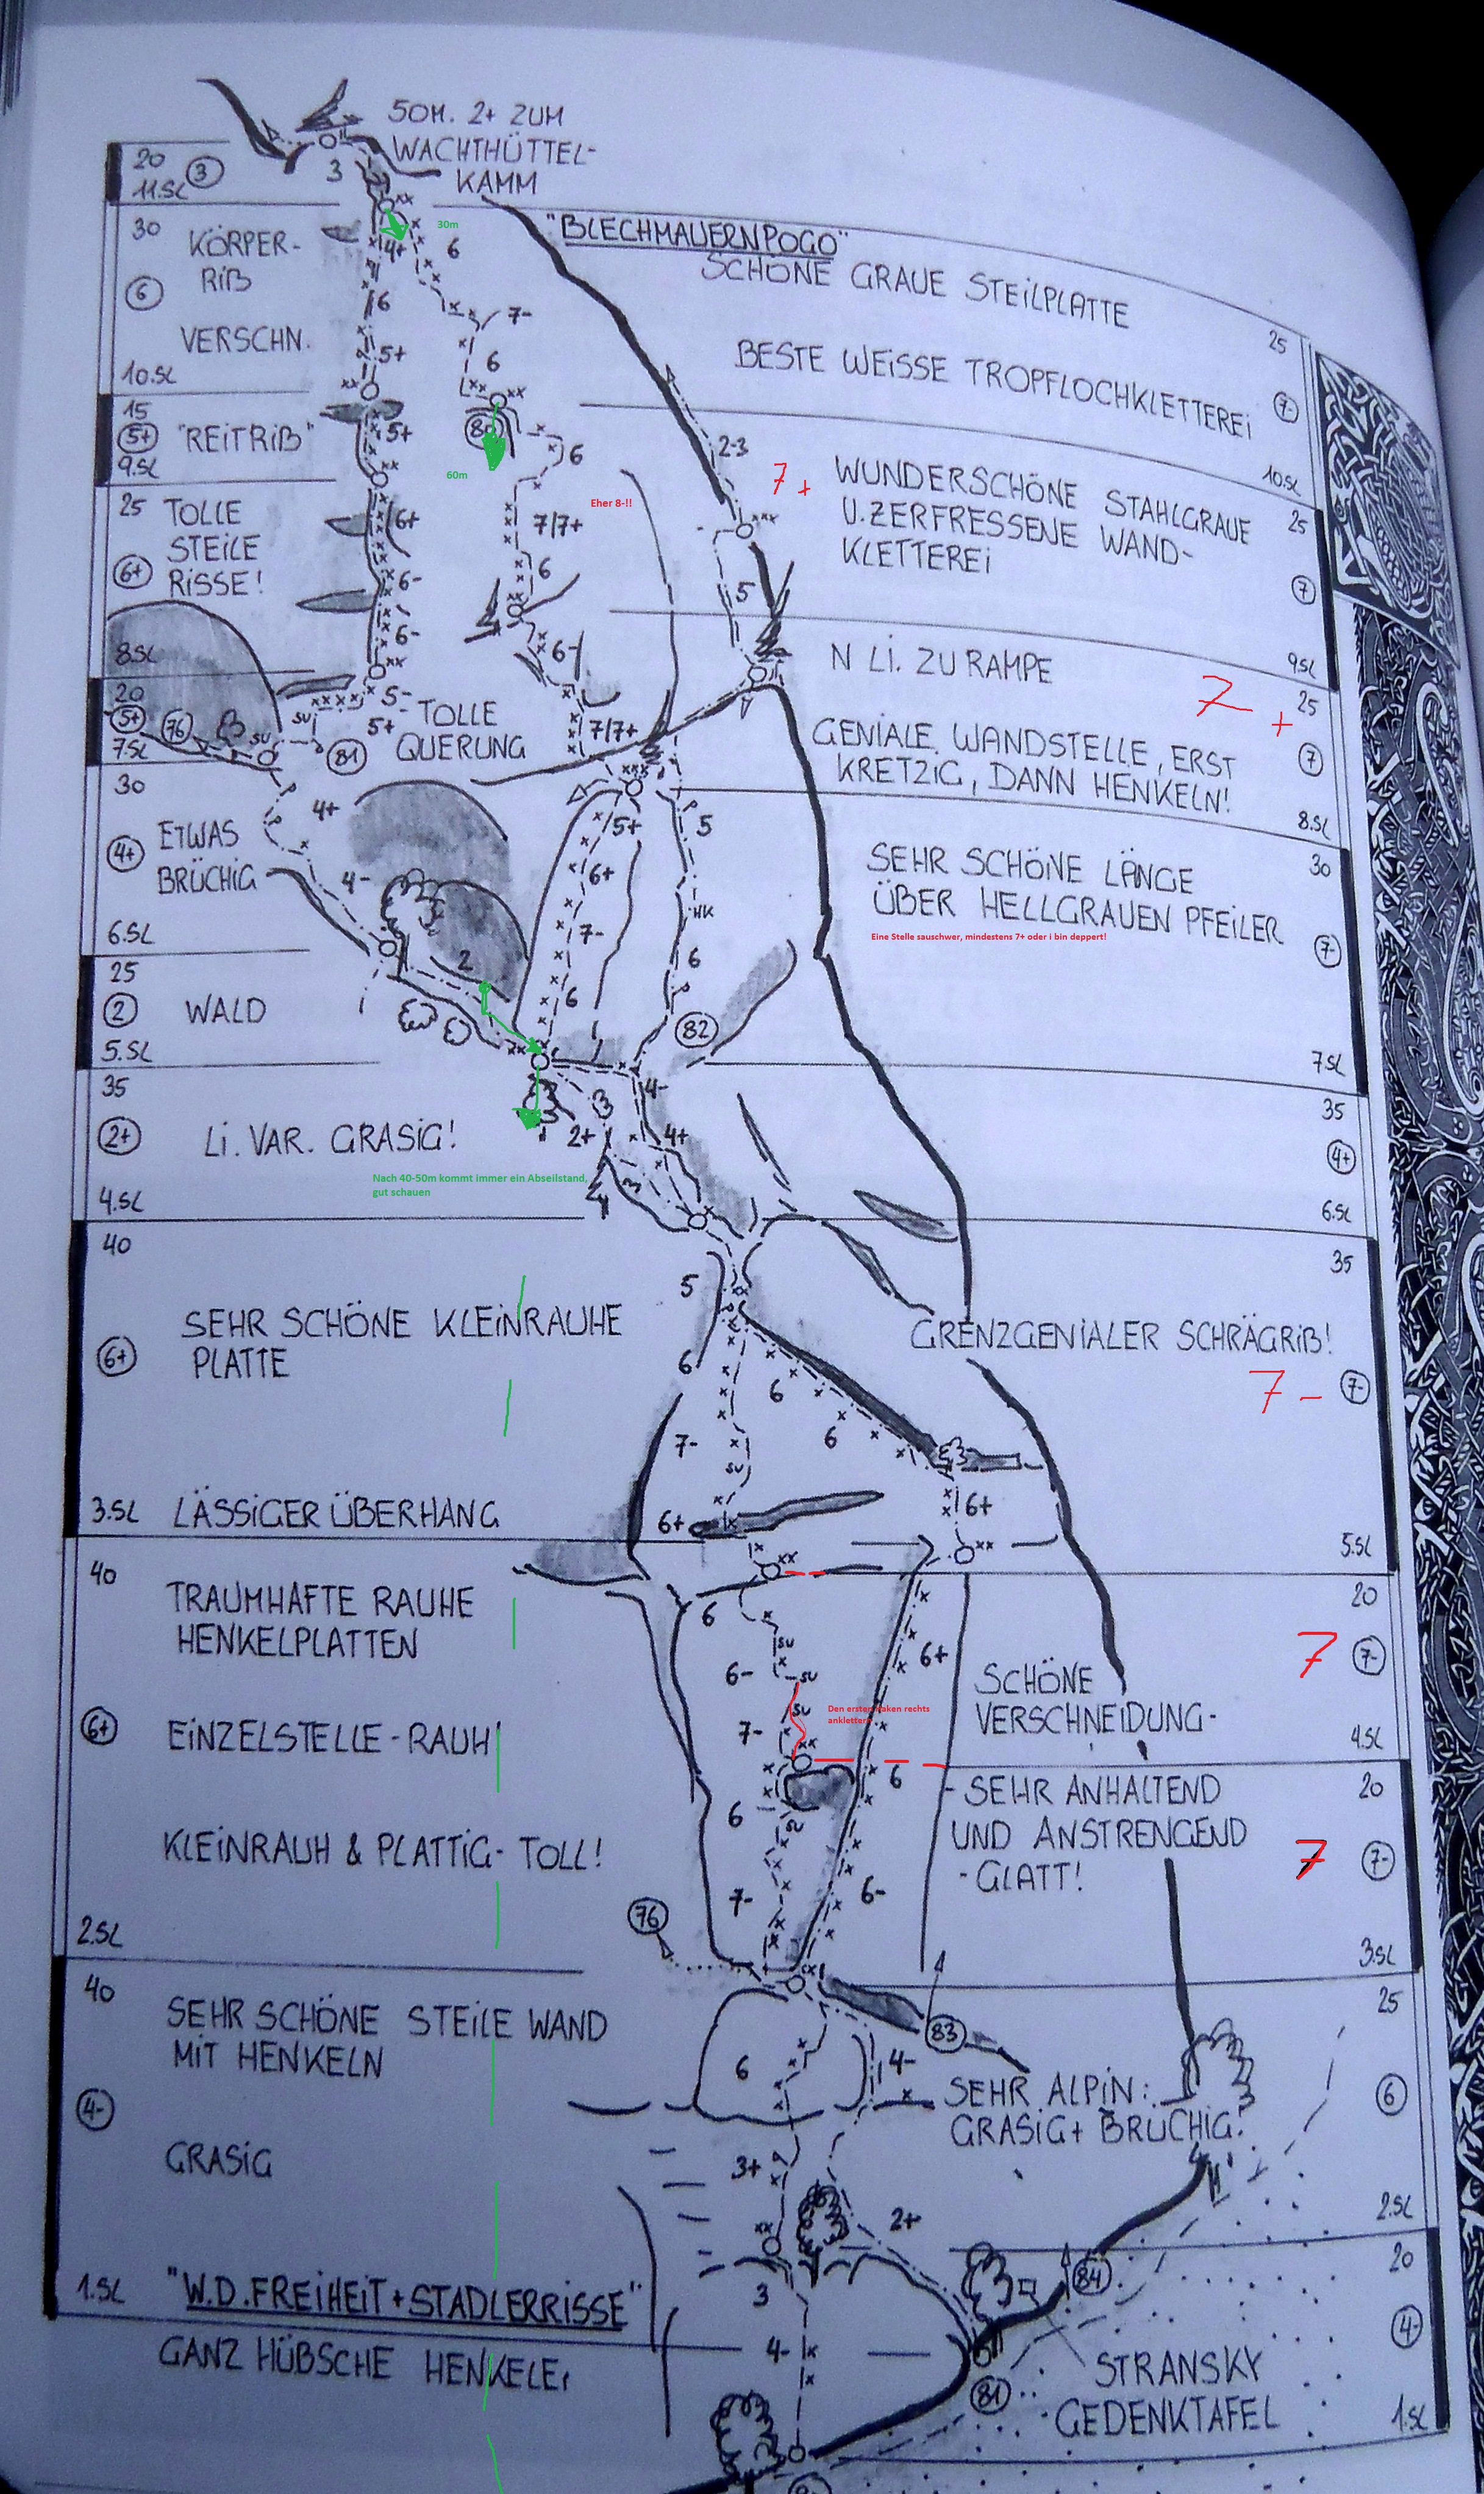 50M. 2+ ZUM
WACHTHÜTTEL-
KAMM
20
3
11.SL
3
xx
30m
30
KÖRPER-
RIß
6
VERSCHN.
10.SL
4+
6
5+
xx
6
7-
6
xx
xx
"BLECHMAUERNPOGO"
SCHÖNE GRAUE STEILPLATTE
BESTE WEISSE TROPFLOCHKLETTEREI
25
7-
10.SL
15
5+
"REITRIß"
9.SL
5+
xx
80
60m
6
2-3
Eher 8-!!
7+
WUNDERSCHÖNE STAHLGRAUE
U. ZERFRESSENE WAND-
KLETTEREI
25
7
9.SL
25
TOLLE
STEILE
RISSE!
6+
8.SL
6+
6-
6-
xx
7/7+
6
xx
6-
xxx
5
N LI. ZU RAMPE
20
5+
7.SL
76
SU
SU
5-
5+
81
TOLLE
QUERUNG
7/7+
xxx
7+
25
GENIALE WANDSTELLE, ERST
KRETZIG, DANN HENKELN!
7
8.SL
30
4+
ETWAS
BRÜCHIG
6.SL
4+
4-
5+
6+
7-
6
5
HK
6
82
SEHR SCHÖNE LÄNGE
ÜBER HELLGRAUEN PFEILER
Eine Stelle sauschwer, mindestens 7+ oder i bin deppert!
30
7-
7.SL
25
2
WALD
5.SL
2
xx
35
2+
LI. VAR. GRASIG!
4.SL
3
2+
4-
4+
3
Nach 40-50m kommt immer ein Abseilstand,
gut schauen
35
4+
6.SL
40
SEHR SCHÖNE KLEINRAUHE
PLATTE
6+
3.SL
LÄSSIGER ÜBERHANG
5
6
7-
SU
6+
6
6
6+
xx
GRENZGENIALER SCHRÄGRIß!
35
7-
7-
5.SL
40
TRAUMHAFTE RAUHE
HENKELPLATTEN
6+
EINZELSTELLE - RAUH!
KLEINRAUH & PLATTIG - TOLL!
2.SL
xx
6
SU
6-
SU
SU
7-
xx
6
7-
6+
6
6-
Den ersten Haken rechts
SCHÖNE
VERSCHNEIDUNG-
20
7
7-
4.SL
- SEHR ANHALTEND
UND ANSTRENGEND
- GLATT!
20
7
7-
3.SL
76
40
SEHR SCHÖNE STEILE WAND
MIT HENKELN
4-
GRASIG
1.SL
6
4-
3+
xx
2+
83
SEHR ALPIN:
GRASIG + BRÜCHIG!
25
6
2.SL
"W.D.FREIHEIT + STADLERRISSE"
GANZ HÜBSCHE HENKELEI
3
4-
84
81
STRANSKY
GEDENKTAFEL
20
4-
1.SL